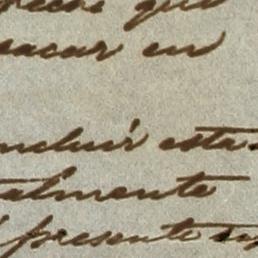 que
sacar en
ncluir esta
almente
presente